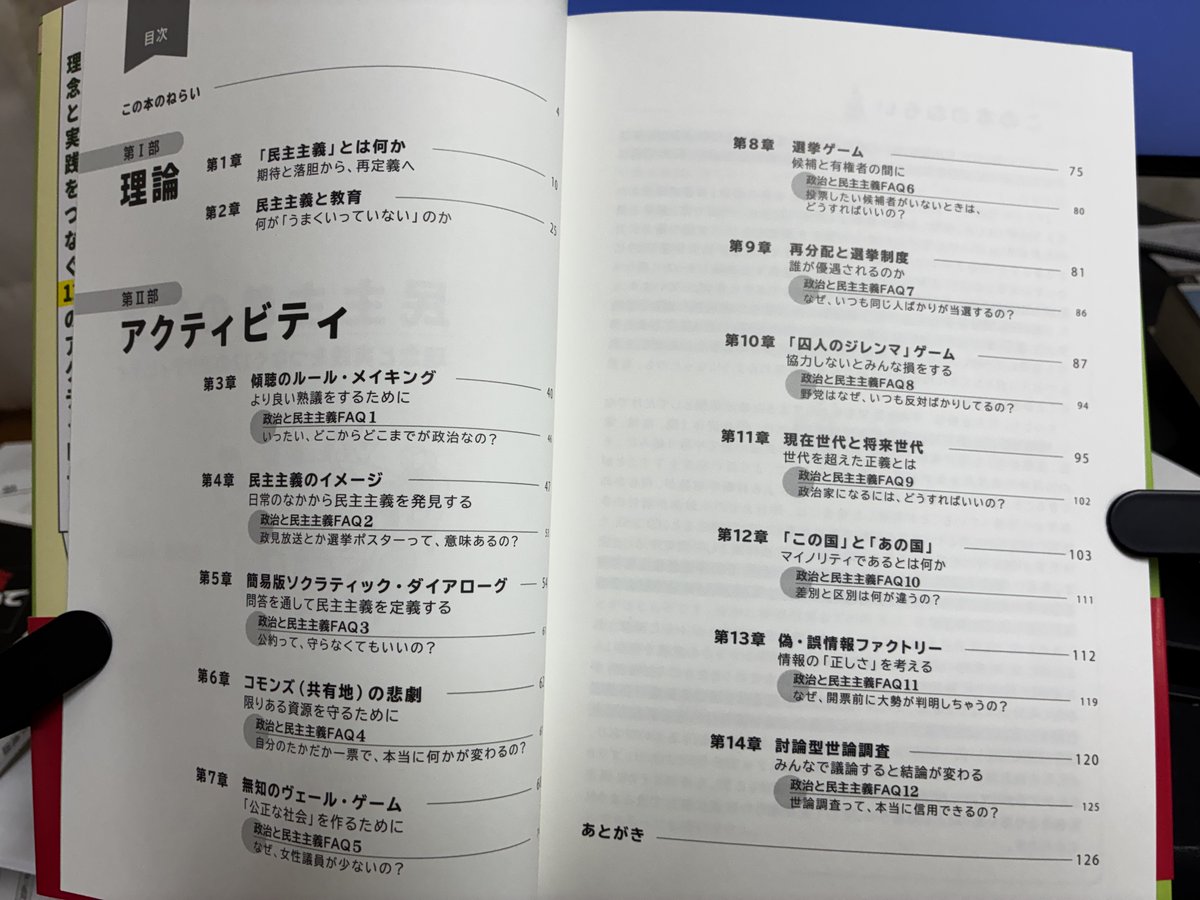 目次
理念と実践をつなぐ
この本のねらい 4
第Ⅰ部
理論
第1章 「民主主義」とは何か
期待と落胆から、再定義へ 10
第2章 民主主義と教育
何が「うまくいっていない」のか 25
第Ⅱ部
アクティビティ
第3章 傾聴のルール・メイキング 40
より良い熟議をするために
政治と民主主義FAQ1
いったい、どこからどこまでが政治なの? 46
第4章 民主主義のイメージ 47
日常のなかから民主主義を発見する
政治と民主主義FAQ2
政見放送とか選挙ポスターって、意味あるの?
第5章 簡易版ソクラティック・ダイアローグ 54
問答を通して民主主義を定義する
政治と民主主義FAQ3
公約って、守らなくてもいいの?
第6章 コモンズ(共有地)の悲劇
限りある資源を守るために
政治と民主主義FAQ4
自分のたかだか一票で、本当に何かが変わるの?
第7章 無知のヴェール・ゲーム
「公正な社会」を作るために
政治と民主主義FAQ5
なぜ、女性議員が少ないの?
第8章 選挙ゲーム 75
候補と有権者の間に
政治と民主主義FAQ6
投票したい候補者がいないときは、 80
どうすればいいの?
第9章 再分配と選挙制度 81
誰が優遇されるのか
政治と民主主義FAQ7
なぜ、いつも同じ人ばかりが当選するの? 86
第10章 「囚人のジレンマ」ゲーム 87
協力しないとみんな損をする
政治と民主主義FAQ8
野党はなぜ、いつも反対ばかりしてるの? 94
第11章 現在世代と将来世代 95
世代を超えた正義とは
政治と民主主義FAQ9
政治家になるには、どうすればいいの? 102
第12章 「この国」と「あの国」 103
マイノリティであるとは何か
政治と民主主義FAQ10
差別と区別は何が違うの? 111
第13章 偽・誤情報ファクトリー 112
情報の「正しさ」を考える
政治と民主主義FAQ11
なぜ、開票前に大勢が判明しちゃうの? 119
第14章 討論型世論調査 120
みんなで議論すると結論が変わる
政治と民主主義FAQ12
世論調査って、本当に信用できるの? 125
あとがき 126